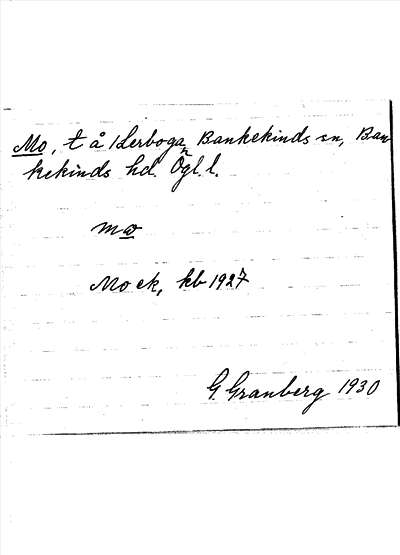 Mo, t å Lerbogan Bankekinds sn, Ban
kekinds hd. Ögl. l.
mω
Mo ek, kb 1927
G. Granberg 1930